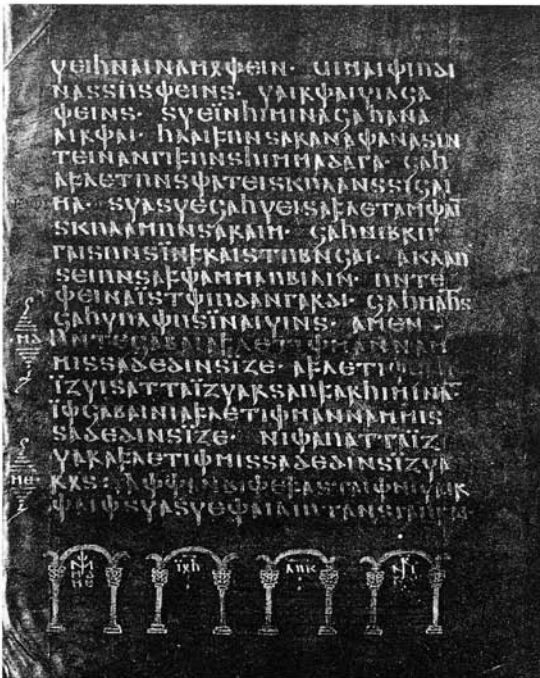 𐍅𐌴𐌹𐌷𐌽𐌰𐌹𐌽𐌰𐌼𐍉𐌸𐌴𐌹𐌽· 𐌵𐌹𐌼𐌰𐌹𐌸𐌹𐌿𐌳𐌹
𐌽𐌰𐍃𐍃𐌿𐍃𐌸𐌴𐌹𐌽𐍃· 𐍅𐌰𐌹𐍂𐌸𐌰𐌹𐍅𐌹𐌻𐌾𐌰
𐌸𐌴𐌹𐌽𐍃· 𐍃𐍅𐌴𐌹̈𐌽𐌷𐌹𐌼𐌹𐌽𐌰𐌾𐌰𐌷𐌰𐌽𐌰
𐌰𐌹𐍂𐌸𐌰𐌹· 𐌷𐌻𐌰𐌹𐍆𐌿𐌽𐍃𐌰𐍂𐌰𐌽𐌰𐌸𐌰𐌽𐌰𐍃𐌹𐌽
𐍄𐌴𐌹𐌽𐌰𐌽𐌲𐌹𐍆𐌿𐌽𐍃𐌷𐌹𐌼𐌼𐌰𐌳𐌰𐌲𐌰· 𐌾𐌰𐌷
𐌰𐍆𐌻𐌴𐍄𐌿𐌽𐍃𐌸𐌰𐍄𐌴𐌹𐍃𐌺𐌿𐌻𐌰𐌽𐍃𐍃𐌹𐌾𐌰𐌹
𐌼𐌰· 𐍃𐍅𐌰𐍃𐍅𐌴𐌾𐌰𐌷𐍅𐌴𐌹𐍃𐌰𐍆𐌻𐌴𐍄𐌰𐌼𐌸𐌰𐌹̅
𐍃𐌺𐌿𐌻𐌰𐌼𐌿𐌽𐍃𐌰𐍂𐌰𐌹𐌼· 𐌾𐌰𐌷𐌽𐌹𐌱𐍂𐌹𐌲
𐌲𐌰𐌹𐍃𐌿𐌽𐍃𐌹̈𐌽𐍆𐍂𐌰𐌹𐍃𐍄𐌿𐌱𐌽𐌾𐌰𐌹· 𐌰𐌺𐌻𐌰𐌿
𐍃𐌴𐌹𐌿𐌽𐍃𐌰𐍆𐌸𐌰𐌼𐌼𐌰𐌿𐌱𐌹𐌻𐌹𐌽· 𐌿𐌽𐍄𐌴
𐌸𐌴𐌹𐌽𐌰𐌹̈𐍃𐍄𐌸𐌹𐌿𐌳𐌰𐌽𐌲𐌰𐍂𐌳𐌹· 𐌾𐌰𐌷𐌼𐌰𐌷𐍄𐍃
𐌾𐌰𐌷𐍅𐌿𐌻𐌸𐌿𐍃𐌹̈𐌽𐌰𐌹𐍅𐌹𐌽𐍃· 𐌰𐌼𐌴𐌽·
𐌼𐌳 𐌿𐌽𐍄𐌴𐌾𐌰𐌱𐌰𐌹𐌰𐍆𐌻𐌴𐍄𐌹𐌸𐌼𐌰𐌽𐌽𐌰𐌼
𐌼𐌹𐍃𐍃𐌰𐌳𐌴𐌳𐌹𐌽𐍃𐌹̈𐌶𐌴· 𐌰𐍆𐌻𐌴𐍄𐌹𐌸𐌾𐌰𐌷
𐌹̈𐌶𐍅𐌹𐍃𐌰𐍄𐍄𐌰𐌹̈𐌶𐍅𐌰𐍂𐍃𐌰𐌿𐍆𐌰𐍂𐌷𐌹𐌼𐌹𐌽𐌰̅
𐌹̈𐌸𐌾𐌰𐌱𐌰𐌹𐌽𐌹𐌰𐍆𐌻𐌴𐍄𐌹𐌸𐌼𐌰𐌽𐌽𐌰𐌼𐌼𐌹𐍃
𐍃𐌰𐌳𐌴𐌳𐌹𐌽𐍃𐌹̈𐌶𐌴· 𐌽𐌹𐌸𐌰𐌿𐌰𐍄𐍄𐌰𐌹̈𐌶
𐍅𐌰𐍂𐌰𐍆𐌻𐌴𐍄𐌹𐌸𐌼𐌹𐍃𐍃𐌰𐌳𐌴𐌳𐌹𐌽𐍃𐌹̈𐌶𐍅𐌰
𐌼𐌴 𐍂𐍉𐍃: 𐌰𐌸𐌸𐌰𐌽𐌱𐌹𐌸𐌴𐍆𐌰𐍃𐍄𐌰𐌹𐌸𐌽𐌹𐍅𐌰𐌹𐍂
𐌸𐌰𐌹𐌸𐍃𐍅𐌰𐍃𐍅𐌴𐌸𐌰𐌹𐌻𐌹𐌿𐍄𐌰𐌽𐍃